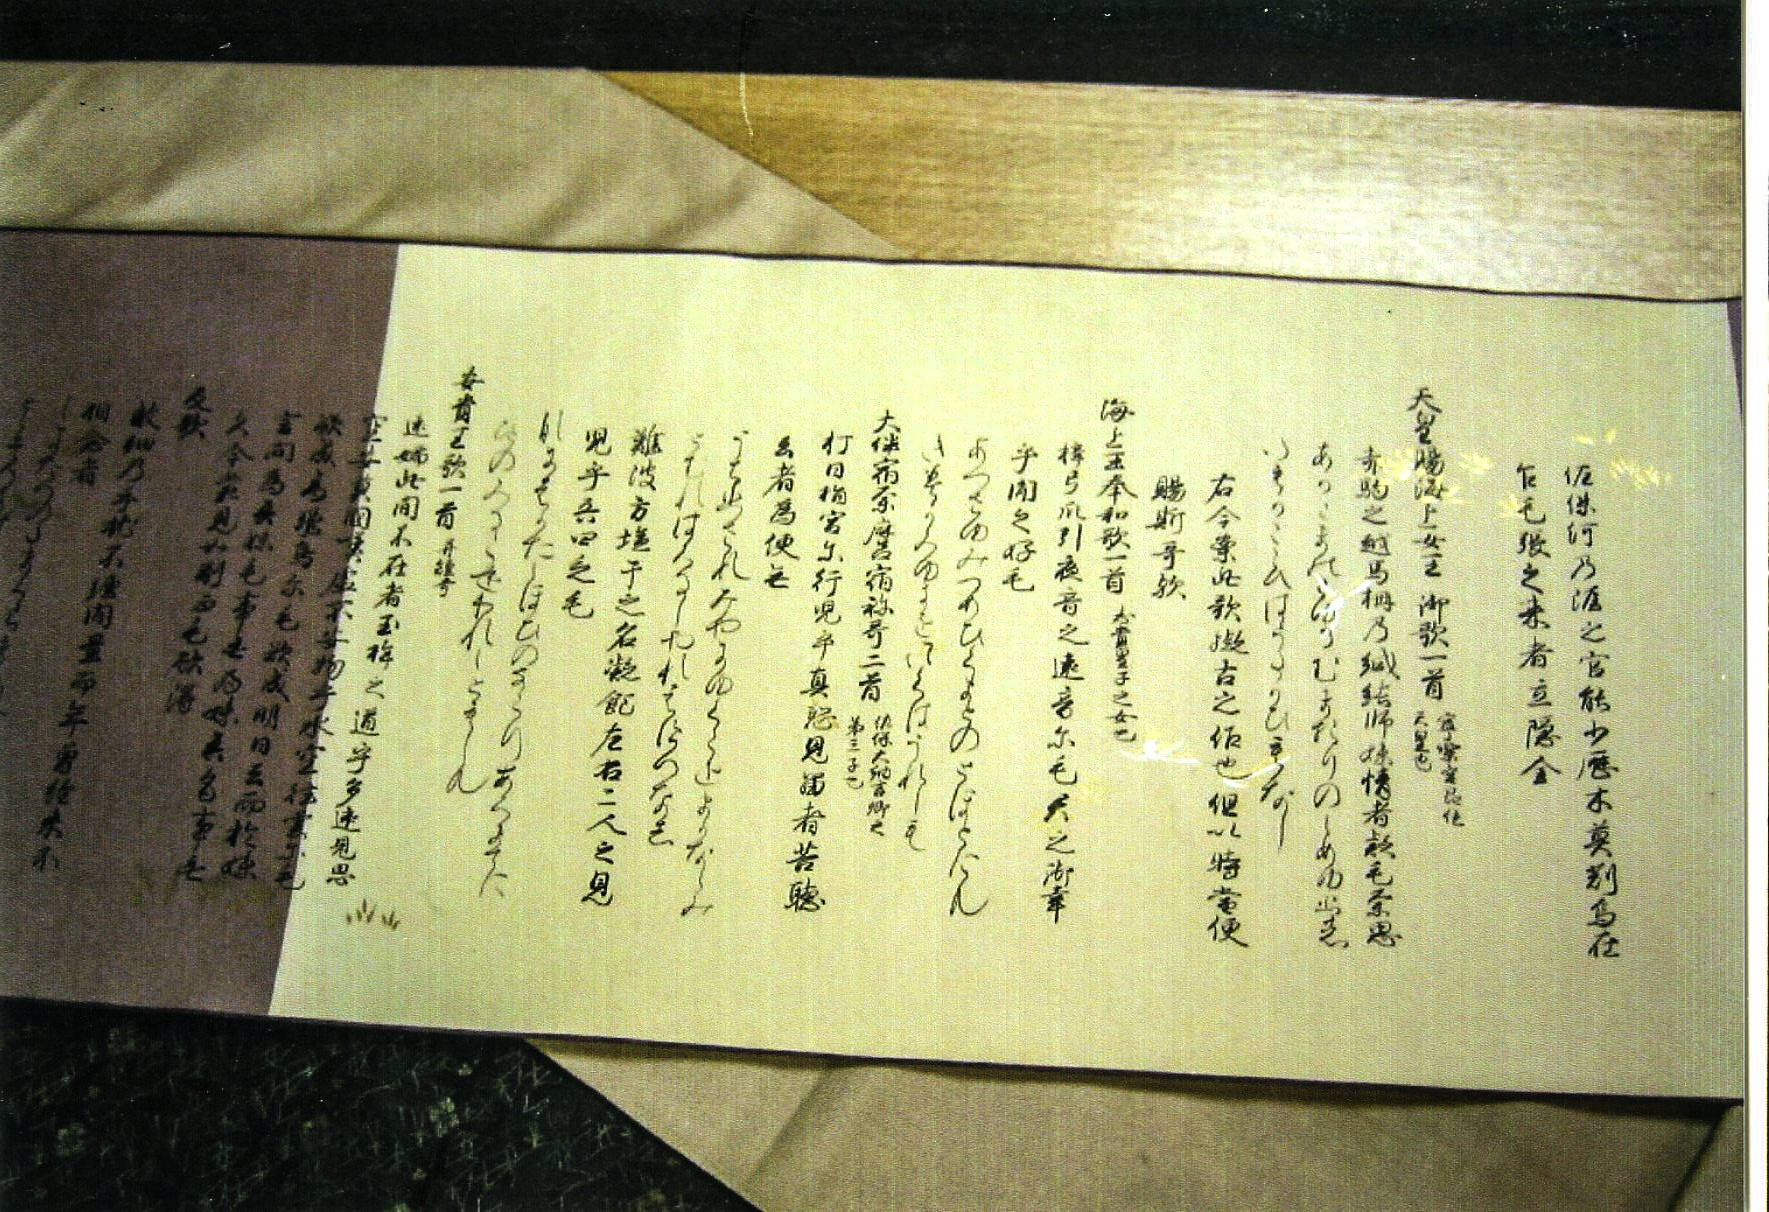 佐保河乃涯之官能少歴木莫刈烏在
乍毛張之来者立隠金
天皇賜海上女王御歌一首 寧樂宮即位天皇也
赤駒之越馬柵乃緘結師妹情者疑毛奈思
あかこまのこゆるむませのしめゆひし
いもかこゝろはうたかひもなし
右今案此歌擬古之作也但以時當便
賜斯哥歟
海上王奉和歌一首 志貴皇子之女也
梓弓爪引夜音之遠音尓毛天之御幸
乎聞之好毛
あつさゆみつまひくよとのとほとにも
きみかみゆきをきくはうれしも
大伴宿奈麿宿祢哥二首 佐保大納言卿之第三子也
打日指宮尓行児乎真悲見留者苦聴
去者為便無
うちひさすみやにゆくこをまかなしみ
とむれはくるしやれはすへなし
難波方塩干之名凝飽左右二人之見
児乎吾四乏毛
なにはかたしほひのなこりあくまてに
ひとのみるこをわれしともしも
安貴王歌一首 并短哥
遠嬬此間不在者玉桙之道乎多遠見思
空安莫國嘆虚不安物乎水空徃雲尓毛
欲成高飛鳥尓毛欲成明日去而於妹
言問為吾妹毛事無為妹吾毛事無
久今裳見如副而毛欲得
反歌
敷細乃手枕不纏間置而年曽経来不
相念者